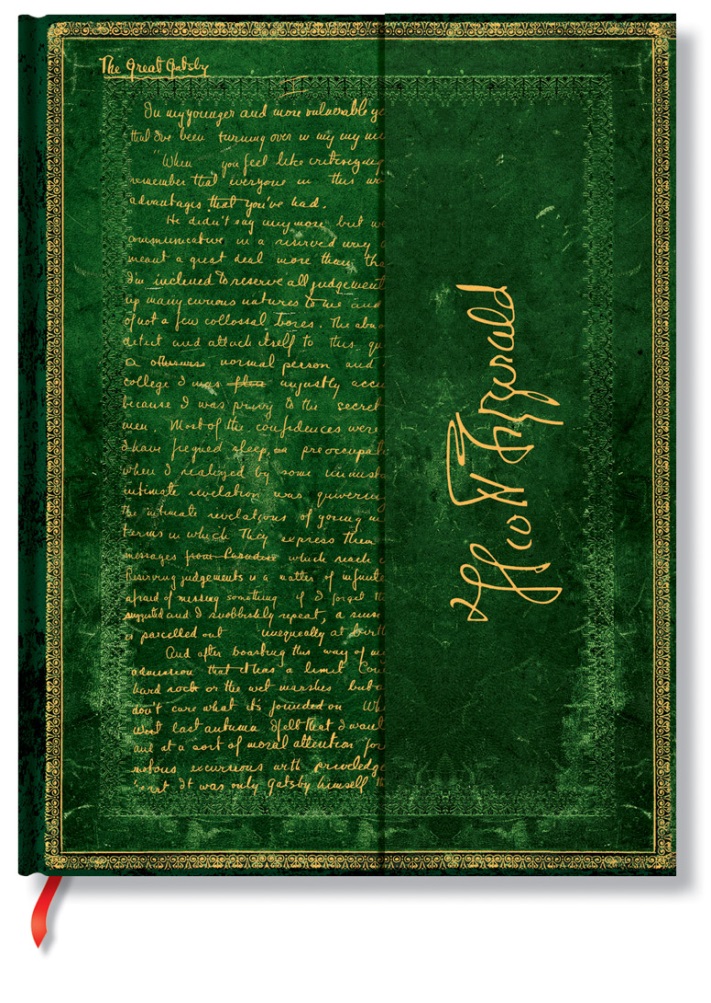 The Great Gatsby
I
In my younger and more vulnerable ye
that I've been turning over in my my mi
"When you feel like criticizing
remember that everyone in this wo
advantages that you've had.
He didn't say any more but w
communicative in a reserved way a
meant a great deal more than tha
I'm inclined to reserve all judgement
up many curious natures to me and
of not a few collossal bores. The abno
detect and attach itself to this qu
a otherwise normal person and
college I was often unjustly accu
because I was privy to the secret
men. Most of the confidences were
I have feigned sleep, preoccupat
when I realized by some unmista
intimate revelation was quivering
the intimate revelations of young m
terms in which they express them
messages from Paradise which reach
Reserving judgements is a matter of infinite
afraid of missing something if I forget th
suggested and I snobbishly repeat, a sense
is parcelled out unequally at birth
And after boasting this way of my
admission that it has a limit. Con
hard rock or the wet marshes but a
don't care what it's founded on Wh
west last autumn I felt that I want
and at a sort of moral attention for
riotous excursions with priviledge
heart. It was only Gatsby himself th
F Scott Fitzgerald